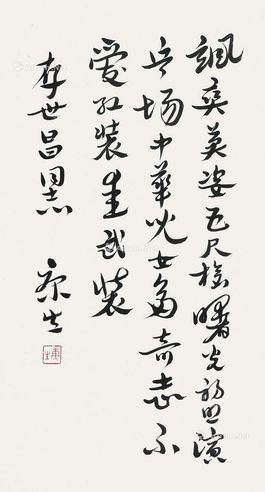 飒爽英姿五尺枪曙光初照演
兵场中华儿女多奇志不
爱红装爱武装
李世昌同志 康生